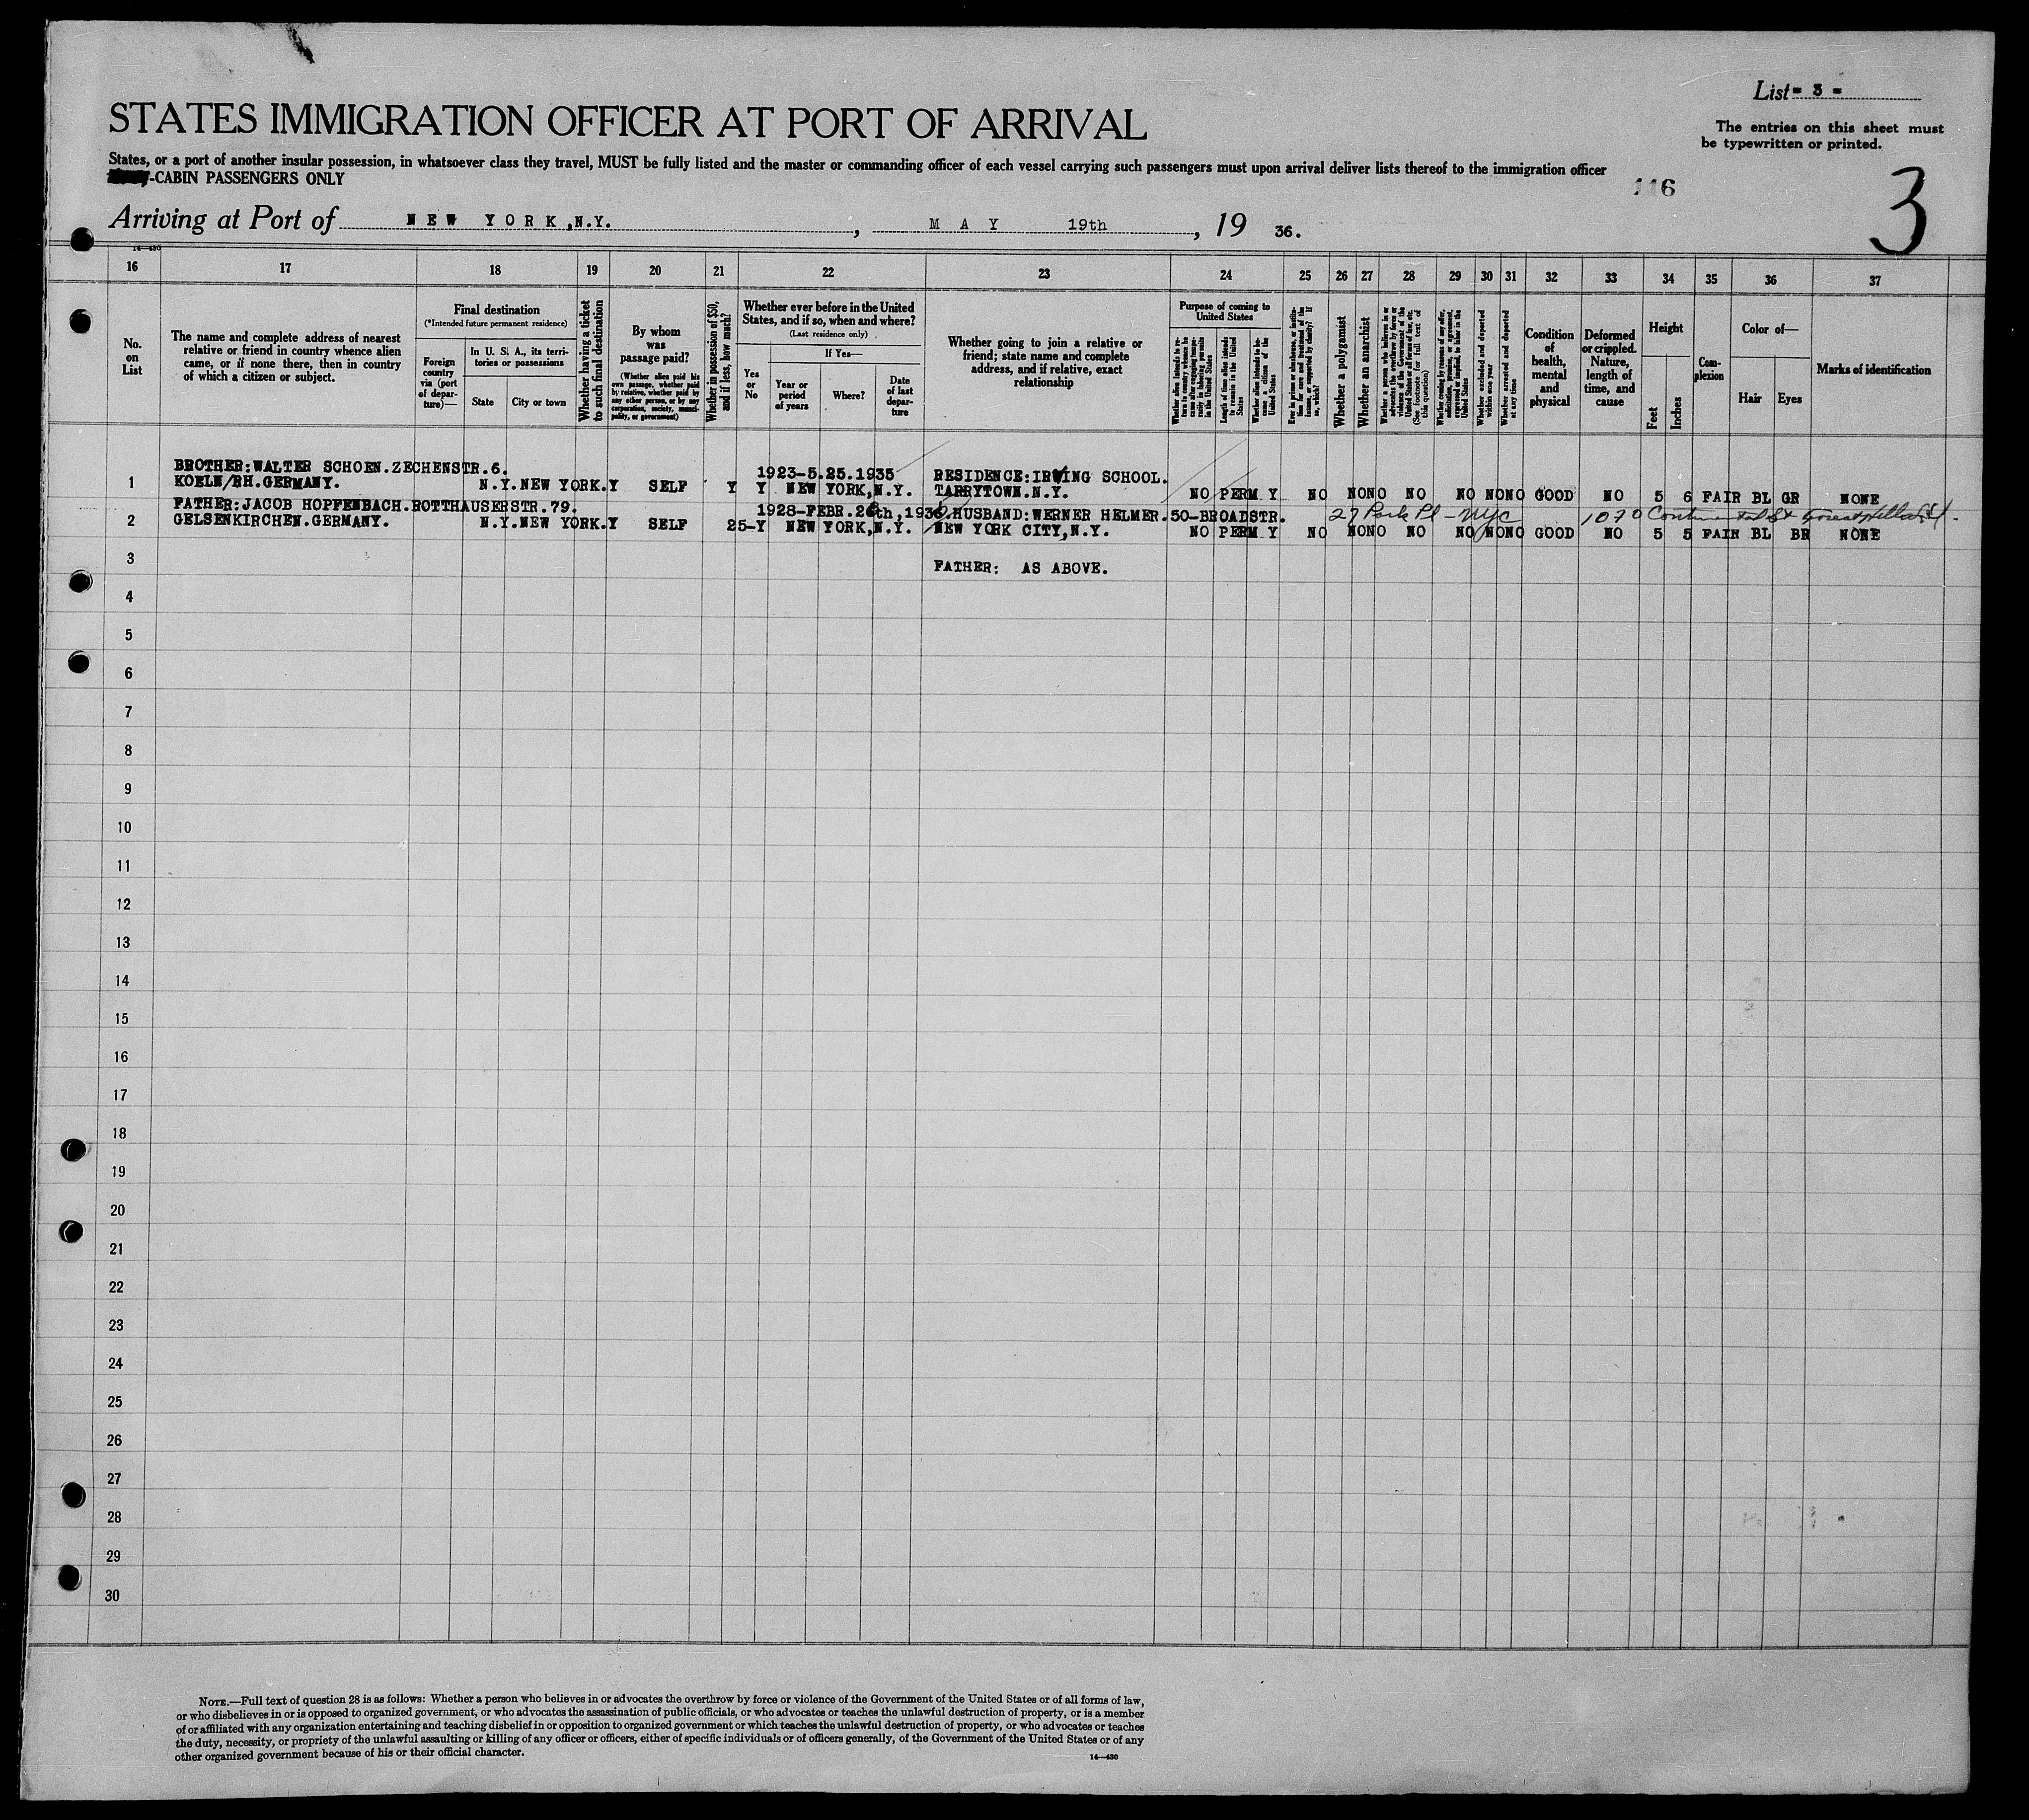 List = 3 =
STATES IMMIGRATION OFFICER AT PORT OF ARRIVAL
The entries on this sheet must
be typewritten or printed.
States, or a port of another insular possession, in whatsoever class they travel, MUST be fully listed and the master or commanding officer of each vessel carrying such passengers must upon arrival deliver lists thereof to the immigration officer
-CABIN PASSENGERS ONLY
116
3
Arriving at Port of NEW YORK,N.Y. , MAY 19th , 19 36.
14—430
16 17 18 19 20 21 22 23 24 25 26 27 28 29 30 31 32 33 34 35 36 37
No.
on
List
The name and complete address of nearest
relative or friend in country whence alien
came, or if none there, then in country
of which a citizen or subject.
Final destination
(*Intended future permanent residence)
Foreign
country
via (port
of depar-
ture)—
In U. S. A., its terri-
tories or possessions
State
City or town
Whether having a ticket
to such final destination
By whom
was
passage paid?
(Whether alien paid his
own passage, whether paid
by relative, whether paid by
any other person, or by any
corporation, society, munici-
pality, or government)
Whether in possession of $50,
and if less, how much?
Whether ever before in the United
States, and if so, when and where?
(Last residence only)
Yes
or
No
If Yes—
Year or
period
of years
Where?
Date
of last
depar-
ture
Whether going to join a relative or
friend; state name and complete
address, and if relative, exact
relationship
Purpose of coming to
United States
Whether alien intends to re-
turn to country whence he
came after engaging tempo-
rarily in laboring pursuits
in the United States
Length of time alien intends
to remain in the United
States
Whether alien intends to be-
come a citizen of the
United States
Ever in prison or almshouse, or institu-
tion for care and treatment of the
insane, or supported by charity? If
so, which?
Whether a polygamist
Whether an anarchist
Whether a person who believes in or
advocates the overthrow by force or
violence of the Government of the
United States or all forms of law, etc.
(See footnote for full text of
this question)
Whether coming by reason of any offer,
solicitation, promise, or agreement,
expressed or implied, to labor in the
United States
Whether excluded and deported
within one year
Whether arrested and deported
at any time
Condition
of
health,
mental
and
physical
Deformed
or crippled.
Nature,
length of
time, and
cause
Height
Feet
Inches
Com-
plexion
Color of—
Hair
Eyes
Marks of identification
BROTHER:WALTER SCHOEN.ZECHENSTR.6. 1923-5.25.1935 RESIDENCE:IRVING SCHOOL.
1 KOELN/RH.GERMANY. N.Y.NEW YORK.Y SELF Y Y NEW YORK,N.Y. TARRYTOWN.N.Y. NO PERM Y NO NONO NO NO NONO GOOD NO 5 6 FAIR BL GR NONE
FATHER:JACOB HOPFENBACH.ROTTHAUSERSTR.79. 1928-FEBR.26th,1936.HUSBAND:WERNER HELMER.50-BROADSTR. 27 Park Pl - NYC 1070 Continental St Forest Hills
2 GELSENKIRCHEN.GERMANY. N.Y.NEW YORK.Y SELF 25-Y NEW YORK,N.Y. NEW YORK CITY,N.Y. NO PERM Y NO NONO NO NO NONO GOOD NO 5 5 FAIR BL BR NONE
3 FATHER: AS ABOVE.
4
5
6
7
8
9
10
11
12
13
14
15
16
17
18
19
20
21
22
23
24
25
26
27
28
29
30
NOTE.—Full text of question 28 is as follows: Whether a person who believes in or advocates the overthrow by force or violence of the Government of the United States or of all forms of law,
or who disbelieves in or is opposed to organized government, or who advocates the assassination of public officials, or who advocates or teaches the unlawful destruction of property, or is a member
of or affiliated with any organization entertaining and teaching disbelief in or opposition to organized government or which teaches the unlawful destruction of property, or who advocates or teaches
the duty, necessity, or propriety of the unlawful assaulting or killing of any officer or officers, either of specific individuals or of officers generally, of the Government of the United States or of any
other organized government because of his or their official character.
14—430